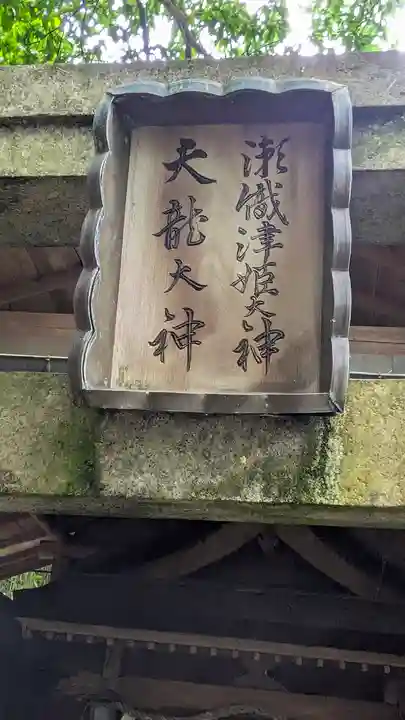 瀬織津姫大神
天龍大神